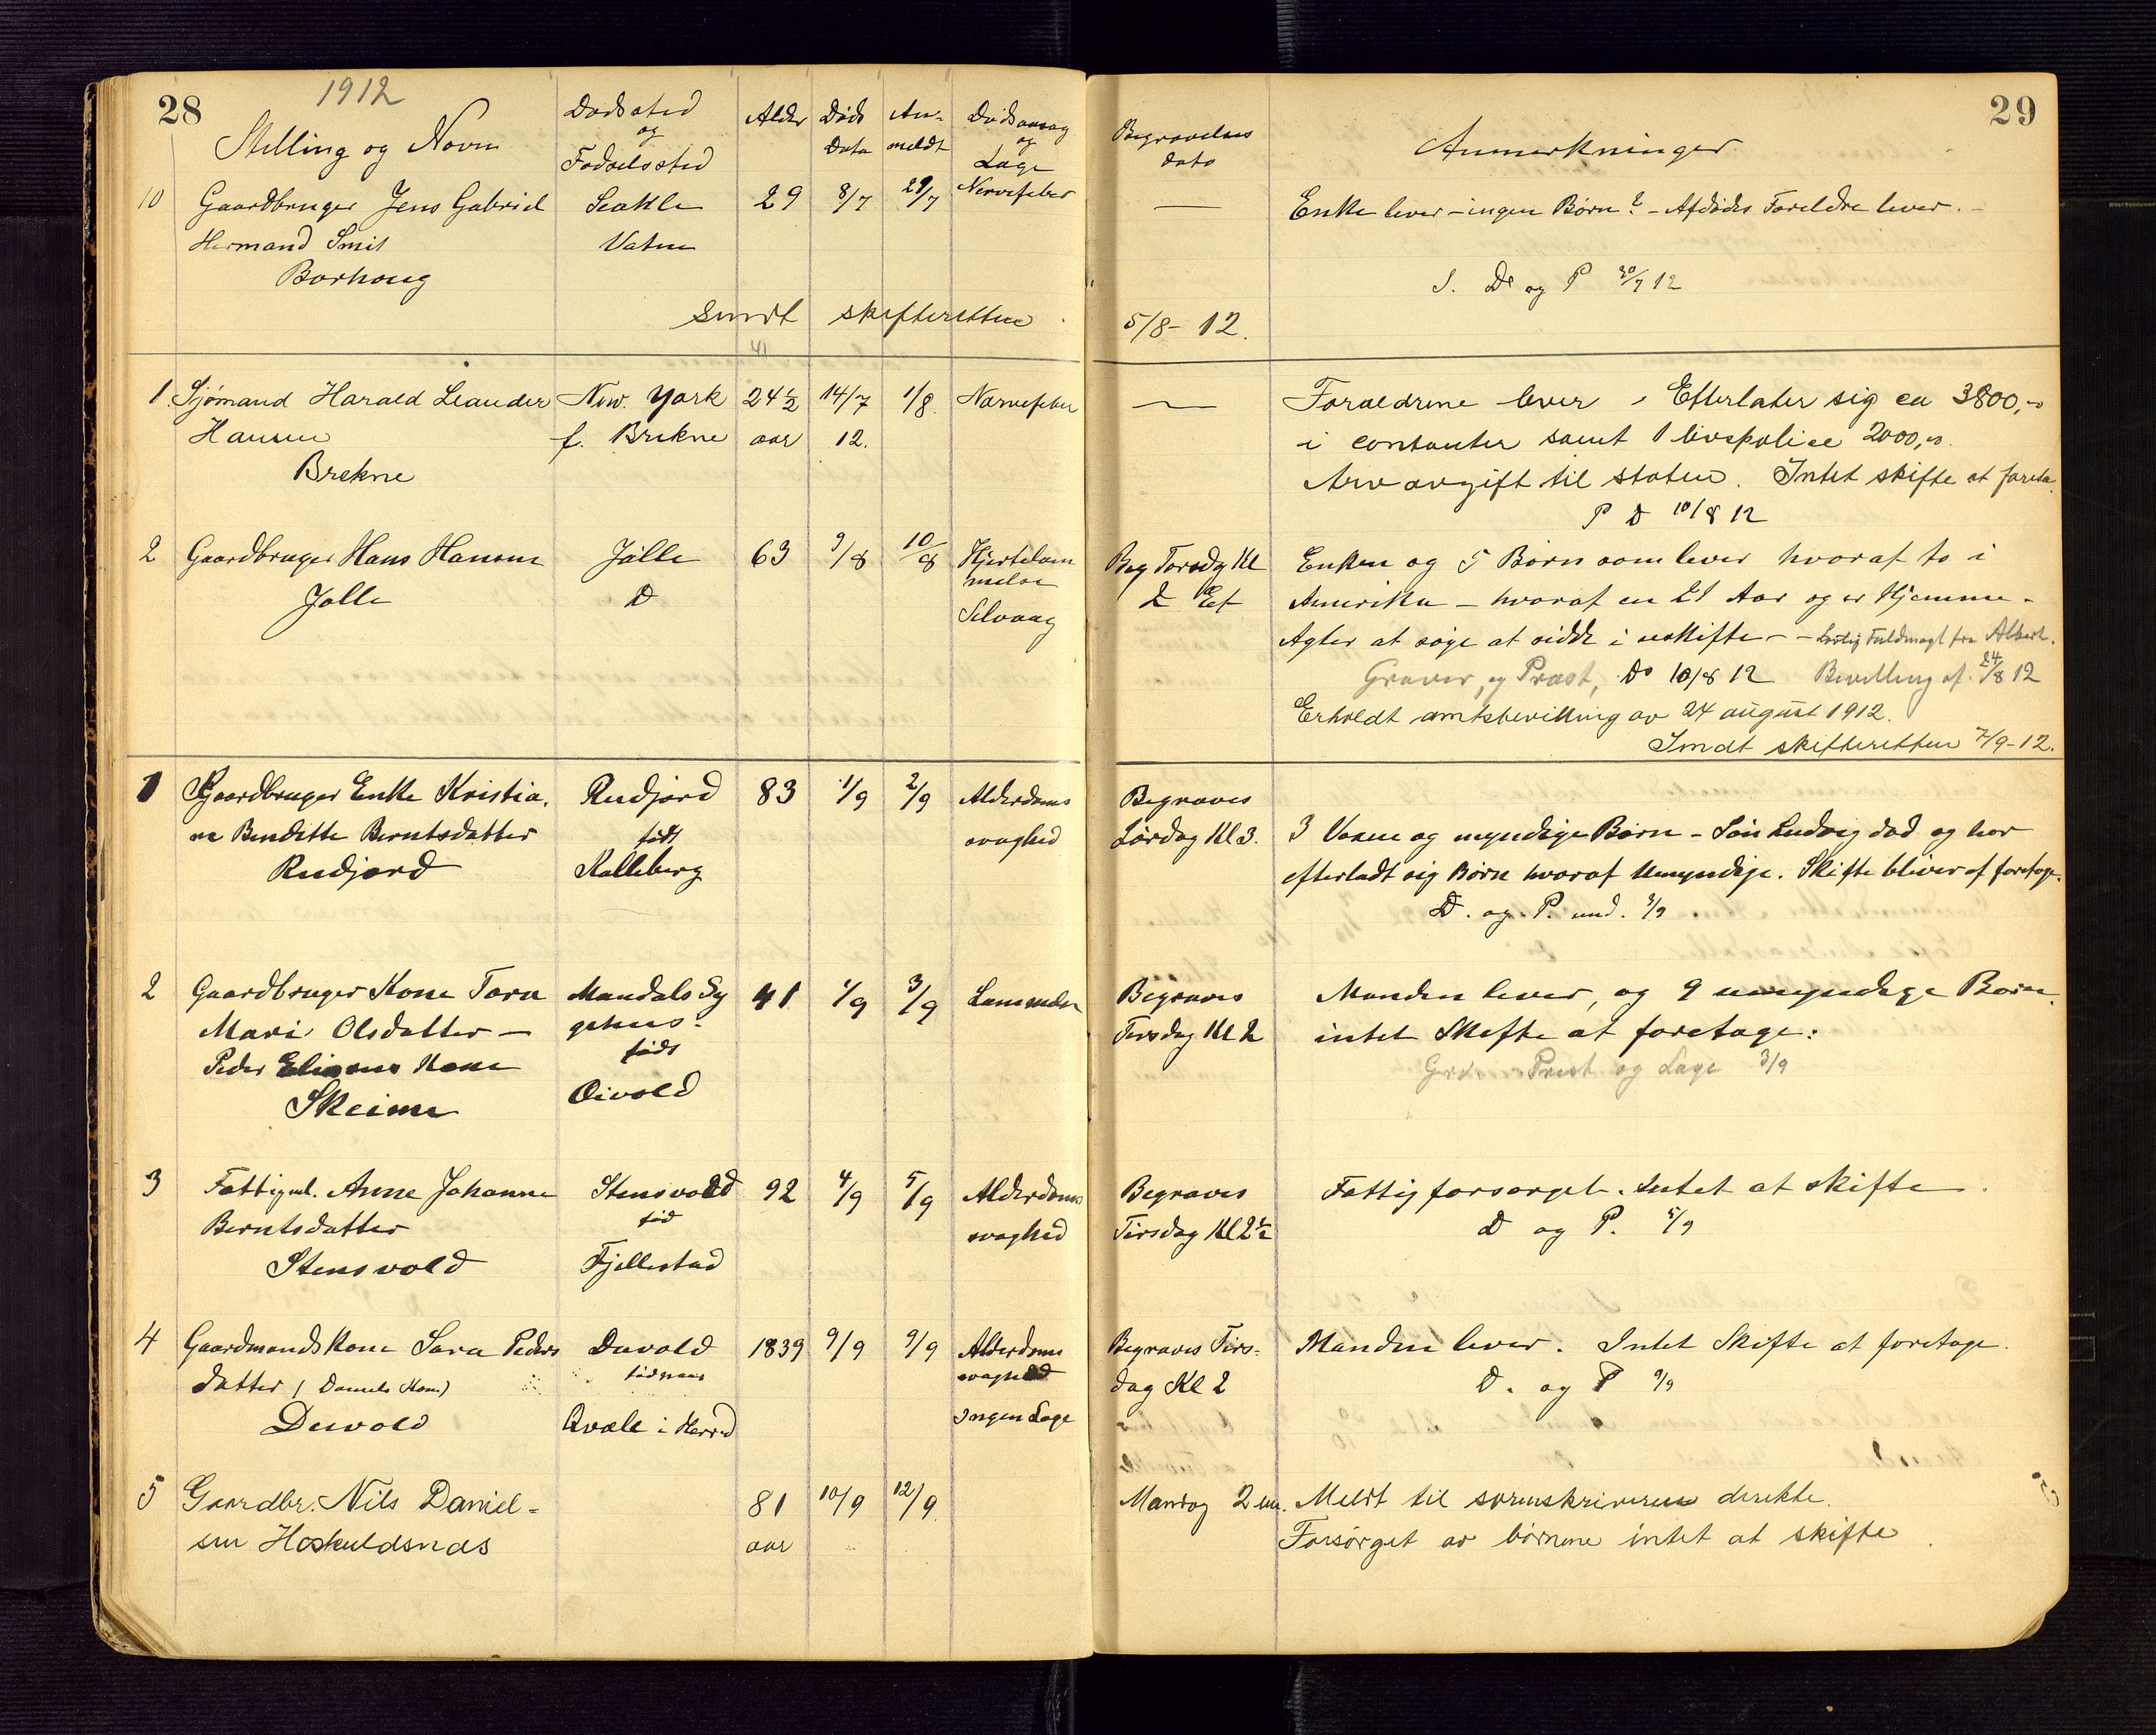 28
1912
Stilling og Navn
Dødssted
og
Fødselssted
Alder
Døds
Dato
An-
meldt
Dødsaarsag
og
Læge
Begravelses
dato
Anmerkninger
29
10 Gaardbruger Jens Gabriel Seattle 29 8/7 29/7 Nervefeber — Enke lever - ingen Børn? - Afdødes Forældre lever. -
Hermand Smit Vatne
Borhoug S. D og P 30/7 12
Sendt skifteretten 5/8 - 12.
1. Sjømand Harald Leander New. York 24 1/2 14/7 1/8 Nervefeber — Forældrene lever, Efterlater sig ca 3800,-
Hansen f. Brekne aar 12. i contanter samt 1 livspolice 2000,-
Brekne Arveavgift til staten. Intet skifte at foreta.
P D 10/8 12
2 Gaardbruger Hans Hansen Jølle 63 9/8 10/8 Hjertelam Beg Torsdg Kl Enken og 5 Børn som lever hvoraf to i
melse
Jølle D Selvaag 2 Ef Amerika - hvoraf en 21 Aar og er Hjemme -
Agter at søge at sidde i uskifte - - Fuldmagt fra Albert.
Graver, og Præst, D 10/8 12 Bevilling af 24/8 12
Erholdt amtsbevilling av 24 august 1912.
Sendt skifteretten 7/9-12.
1 Gaardbruger Enke Kristia. Rudjord 83 1/9 2/9 Alderdoms Begraves
ne Benditte Berntsdatter født svaghed Lørdag Kl 3. 3 Voxne og myndige Børn - Søn Ludvig død og har
Rudjord Kalleberg efterladt sig Børn hvoraf Umyndige. Skifte bliver at foretage.
D. og. P. und. 3/9
2 Gaardbruger Kone Tora Mandals Sy 41 1/9 3/9 Begraves Manden lever, og 9 umyndige Børn.
Mari Olsdatter — gehus. Tirsdag Kl 2 intet Skifte at foretage:
Peder Eliasens Kone født Prest og Læge 3/9
Skeime Øivold
3 Fattigul. Anne Johanne Stensvold 92 4/9 5/9 Alderdoms Begraves Fattigforsørget. Intet at skifte.
Berntsdatter fød svaghed Tirsdag Kl 2 1/2 D og P. 5/9
Stensvold Fjellestad
4 Gaardmands Kone Sara Peders Duvold 1839 9/9 9/9 Alderdoms Begraves Tirs- Manden lever. Intet Skifte at foretage.
datter (Daniels Kone) født paa svaghed dag Kl 2 D. og P 9/9
Duvold Qvale i Herred Ingen Læge
5 Gaardbr. Nils Daniel- 81 10/9 12/9 Mandag 2 em. Meldt til sorenskriveren direkte.
sen Høskuldsnes aar Forsørget av børnene intet at skifte